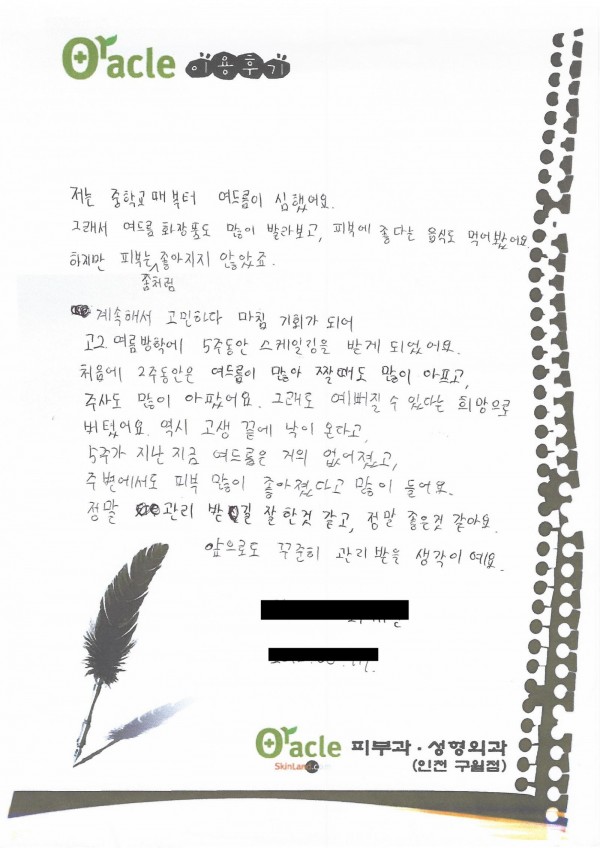 Oracle 이용후기
저는 중학교때부터 여드름이 심했어요.
그래서 여드름 화장품도 많이 발라보고, 피부에 좋다는 음식도 먹어봤어요.
하지만 피부는 좀처럼 좋아지지 않았죠.
계속해서 고민하다 마침 기회가 되어
고2 여름방학에 5주동안 스케일링을 받게 되었어요.
처음에 2주동안은 여드름이 많아 짤때도 많이 아프고,
주사도 많이 아팠어요. 그래도 예뻐질 수 있다는 희망으로
버텼어요. 역시 고생 끝에 낙이 온다고,
5주가 지난 지금 여드름은 거의 없어졌고,
주변에서도 피부 많이 좋아졌다고 많이 들어요.
정말 관리 받길 잘한것 같고, 정말 좋은것 같아요.
앞으로도 꾸준히 관리받을 생각이예요.
Oracle 피부과·성형외과
SkinLand.com (인천 구월점)